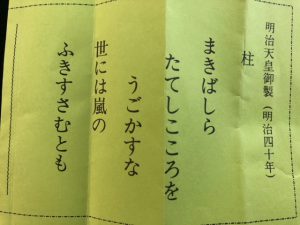 明治天皇御製(明治四十年)
柱
まきばしら
たてしこころを
うごかすな
世には嵐の
ふきすさむとも